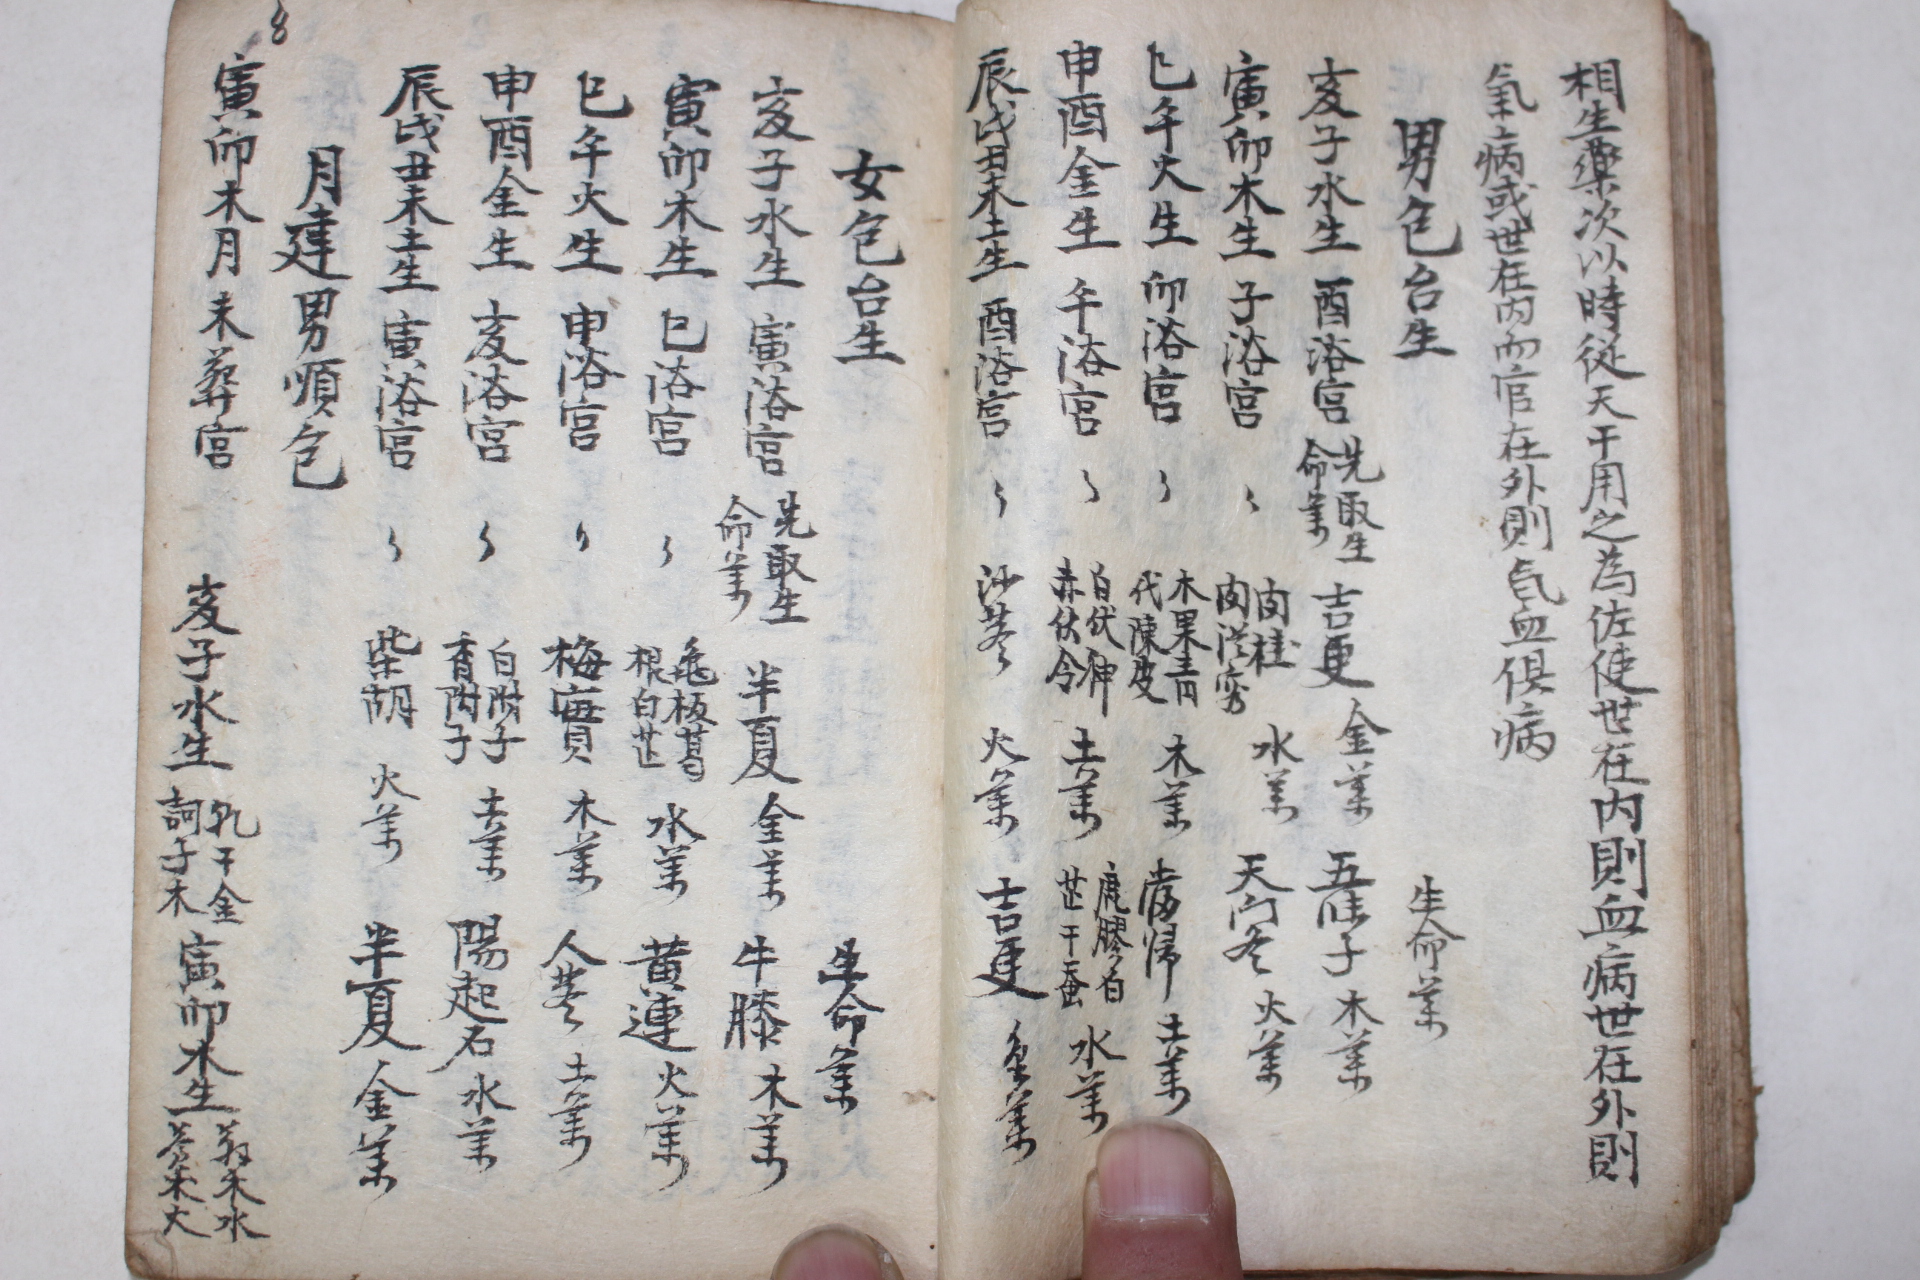 相生藥次以時從天干用之為佐使世在內則血病世在外則
氣病或世在內而官在外則氣血俱病
男包台生 生命薬
亥子水生 酉浴宮 先取生命薬 吉更 金薬 五味子 木薬
寅卯木生 子浴宮 〻 肉桂肉蓯蓉 水薬 天門冬 火薬
巳午火生 卯浴宮 〻 木果青代陳皮 木薬 當帰 土薬
申酉金生 午浴宮 〻 白伏神赤伏令 土薬 鹿膠白芷干蚕 水薬
辰戌丑未土生 酉浴宮 〻 沙参 火薬 吉更 金薬
女包台生 生命薬
亥子水生 寅浴宮 先取生命薬 半夏 金薬 牛膝 木薬
寅卯木生 巳浴宮 〻 龟板葛根白芷 水薬 黄連 火薬
巳午火生 申浴宮 〻 梅實 木薬 人参 土薬
申酉金生 亥浴宮 〻 白附子香附子 土薬 陽起石 水薬
辰戌丑未土生 寅浴宮 〻 柴胡 火薬 半夏 金薬
月建男順包
寅卯木月 未葬宮 亥子水生 乳干金訶子木 寅卯木生 水火
8